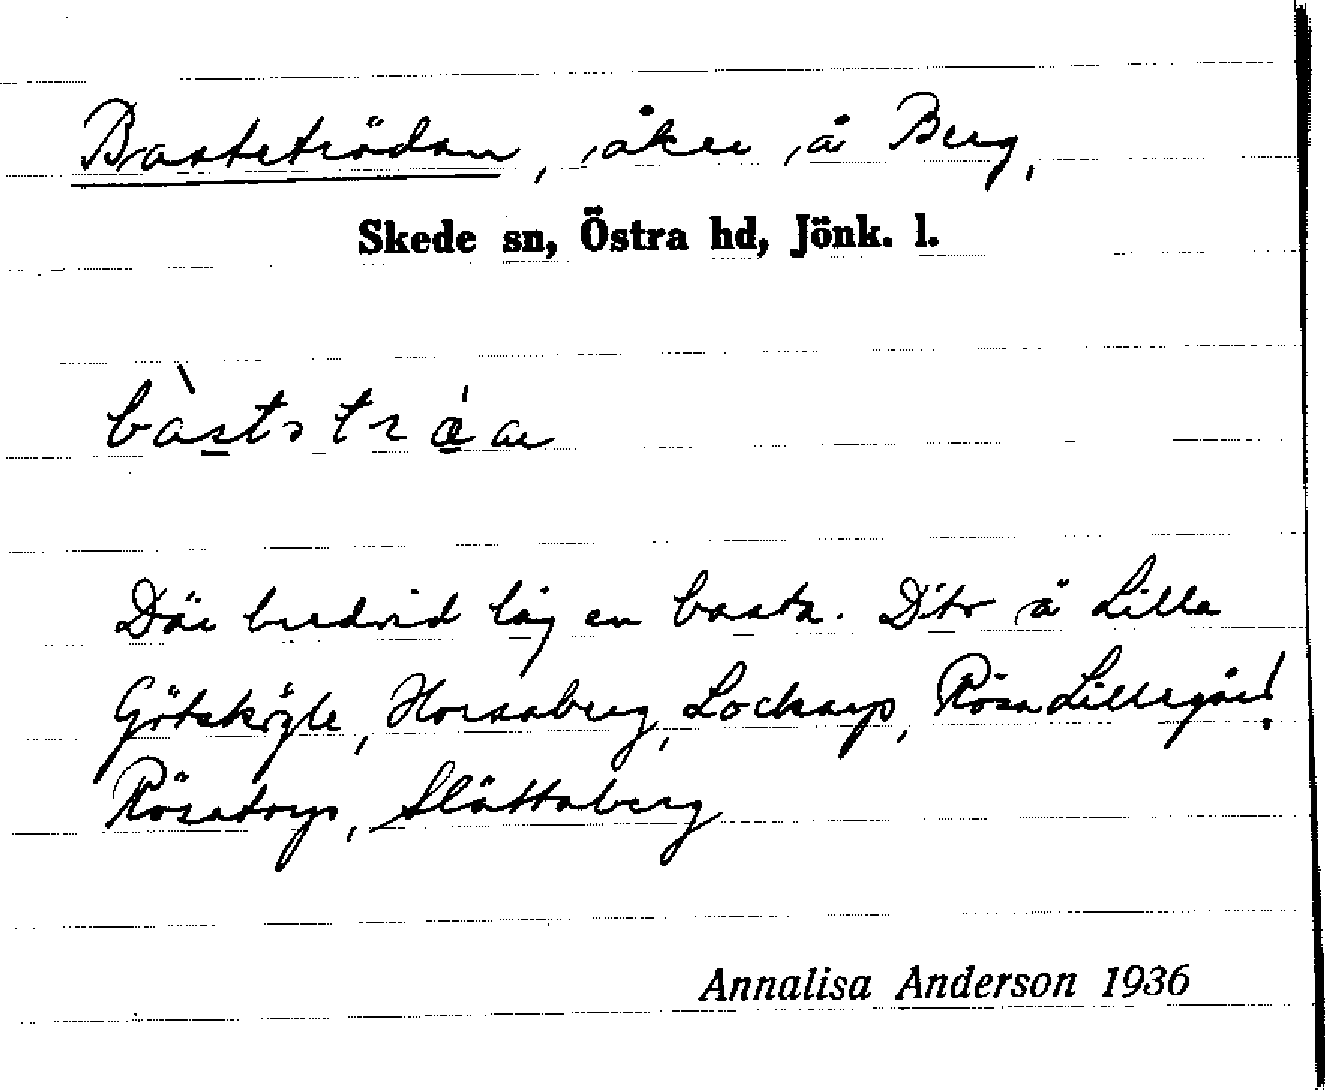 Basteträdan, åker å Berg,
Skede sn, Östra hd, Jönk. l.
Där bredvid låg en basta. D:tr å Lilla
Götskögle, Horsaberg, Lockarp, Rösa Lillegård,
Rösatorp, Slättaberg
Annalisa Anderson 1936